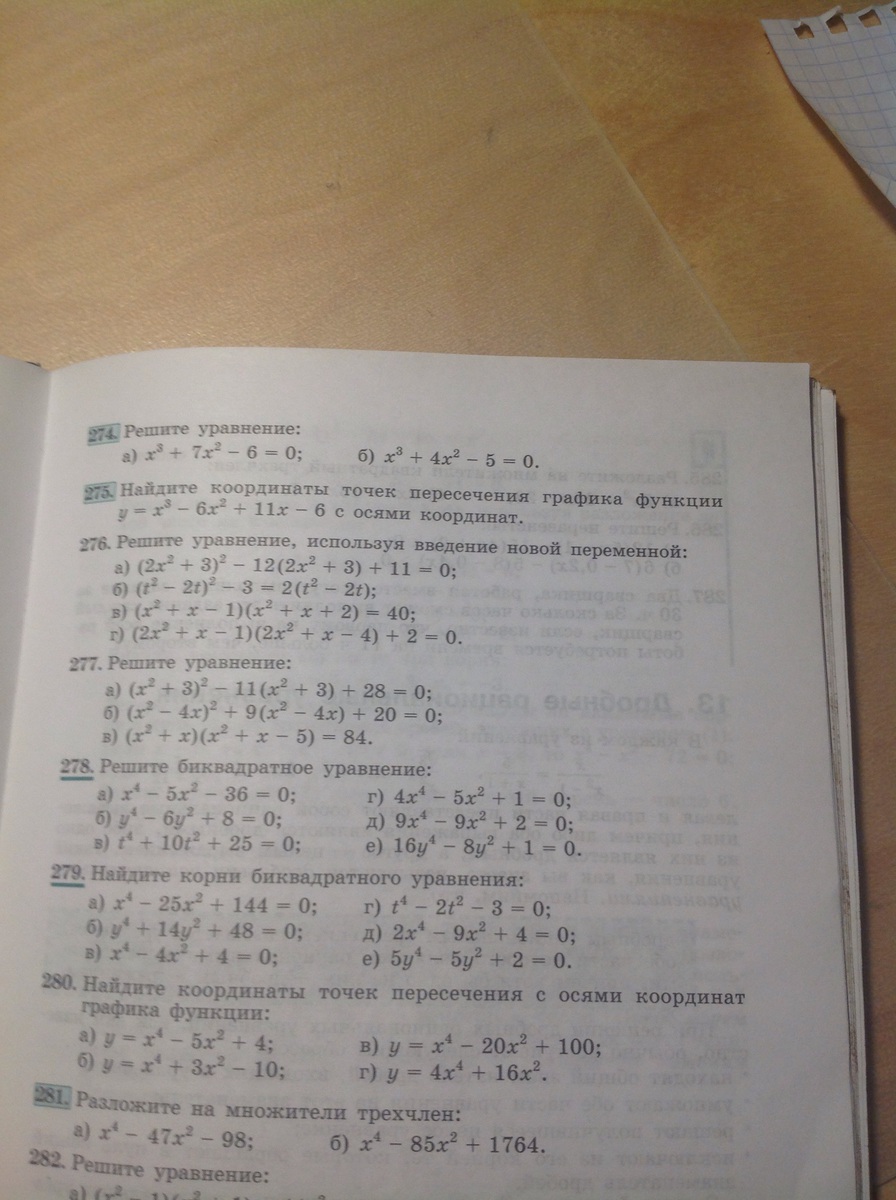 274. Решите уравнение:
а) x³ + 7x² − 6 = 0; б) x³ + 4x² − 5 = 0.
275. Найдите координаты точек пересечения графика функции
y = x³ − 6x² + 11x − 6 с осями координат.
276. Решите уравнение, используя введение новой переменной:
а) (2x² + 3)² − 12(2x² + 3) + 11 = 0;
б) (t² − 2t)² − 3 = 2(t² − 2t);
в) (x² + x − 1)(x² + x + 2) = 40;
г) (2x² + x − 1)(2x² + x − 4) + 2 = 0.
277. Решите уравнение:
а) (x² + 3)² − 11(x² + 3) + 28 = 0;
б) (x² − 4x)² + 9(x² − 4x) + 20 = 0;
в) (x² + x)(x² + x − 5) = 84.
278. Решите биквадратное уравнение:
а) x⁴ − 5x² − 36 = 0; г) 4x⁴ − 5x² + 1 = 0;
б) y⁴ − 6y² + 8 = 0; д) 9x⁴ − 9x² + 2 = 0;
в) t⁴ + 10t² + 25 = 0; е) 16y⁴ − 8y² + 1 = 0.
279. Найдите корни биквадратного уравнения:
а) x⁴ − 25x² + 144 = 0; г) t⁴ − 2t² − 3 = 0;
б) y⁴ + 14y² + 48 = 0; д) 2x⁴ − 9x² + 4 = 0;
в) x⁴ − 4x² + 4 = 0; е) 5y⁴ − 5y² + 2 = 0.
280. Найдите координаты точек пересечения с осями координат
графика функции:
а) y = x⁴ − 5x² + 4; в) y = x⁴ − 20x² + 100;
б) y = x⁴ + 3x² − 10; г) y = 4x⁴ + 16x².
281. Разложите на множители трехчлен:
а) x⁴ − 47x² − 98; б) x⁴ − 85x² + 1764.
282. Решите уравнение: